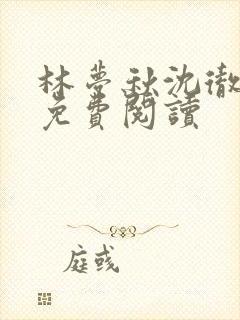 林夢秋沈徹
免費閱讀
庭彧